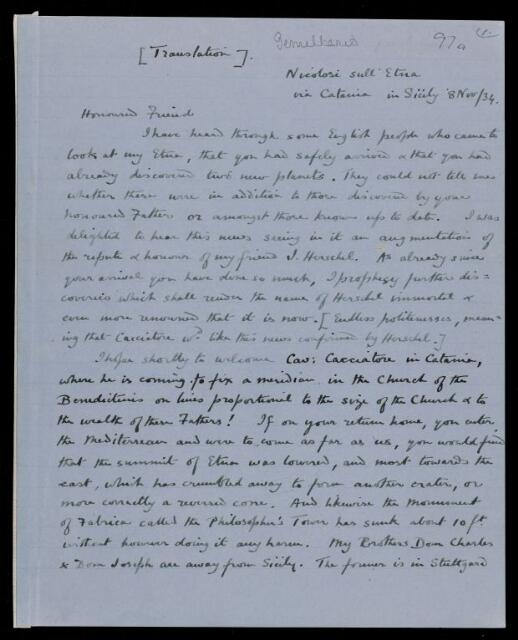 Gemellaro
97a
[Translation].
Nicolosi sull' Etna
via Catania in Sicily 8 Nov/34.
Honoured Friend
I have heard through some English people who came to
look at my Etna, that you had safely arrived & that you had
already discovered two new planets. They could not tell me
whether these were in addition to those discovered by your
honoured Father or amongst those known up to date. I was
delighted to hear this news seeing in it an augmentation of
the repute & honour of my friend J. Herschel. As already since
your arrival you have done so much, I prophesy further dis-
coveries which shall render the name of Herschel immortal &
even more renowned that it is now. [Endless politenesses, mean-
ing that Cacciatore wd. like this news confirmed by Herschel.]
I hope shortly to welcome Cav: Cacciatore in Catania,
where he is coming to fix a meridian in the Church of the
Benedictines on lines proportional to the size of the Church & to
the wealth of these Fathers! If on your return home, you enter
the Mediterrean and were to come as far as us, you would find
that the summit of Etna was lowered, and most towards the
east, which has crumbled away to form another crater, or
more correctly a reversed cone. And likewise the Monument
of Fabrica called the Philosopher's Tower has sunk about 10 ft
without however doing it any harm. My Brothers Dom Charles
& Dom Joseph are away from Sicily. The former is in Stuttgard